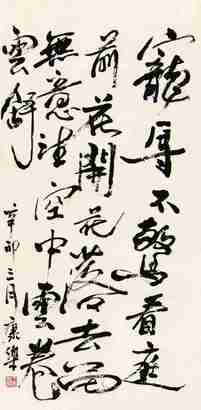 寵辱不驚看庭
前花開花落去留
無意望空中雲卷
雲舒
辛卯三月 康樂